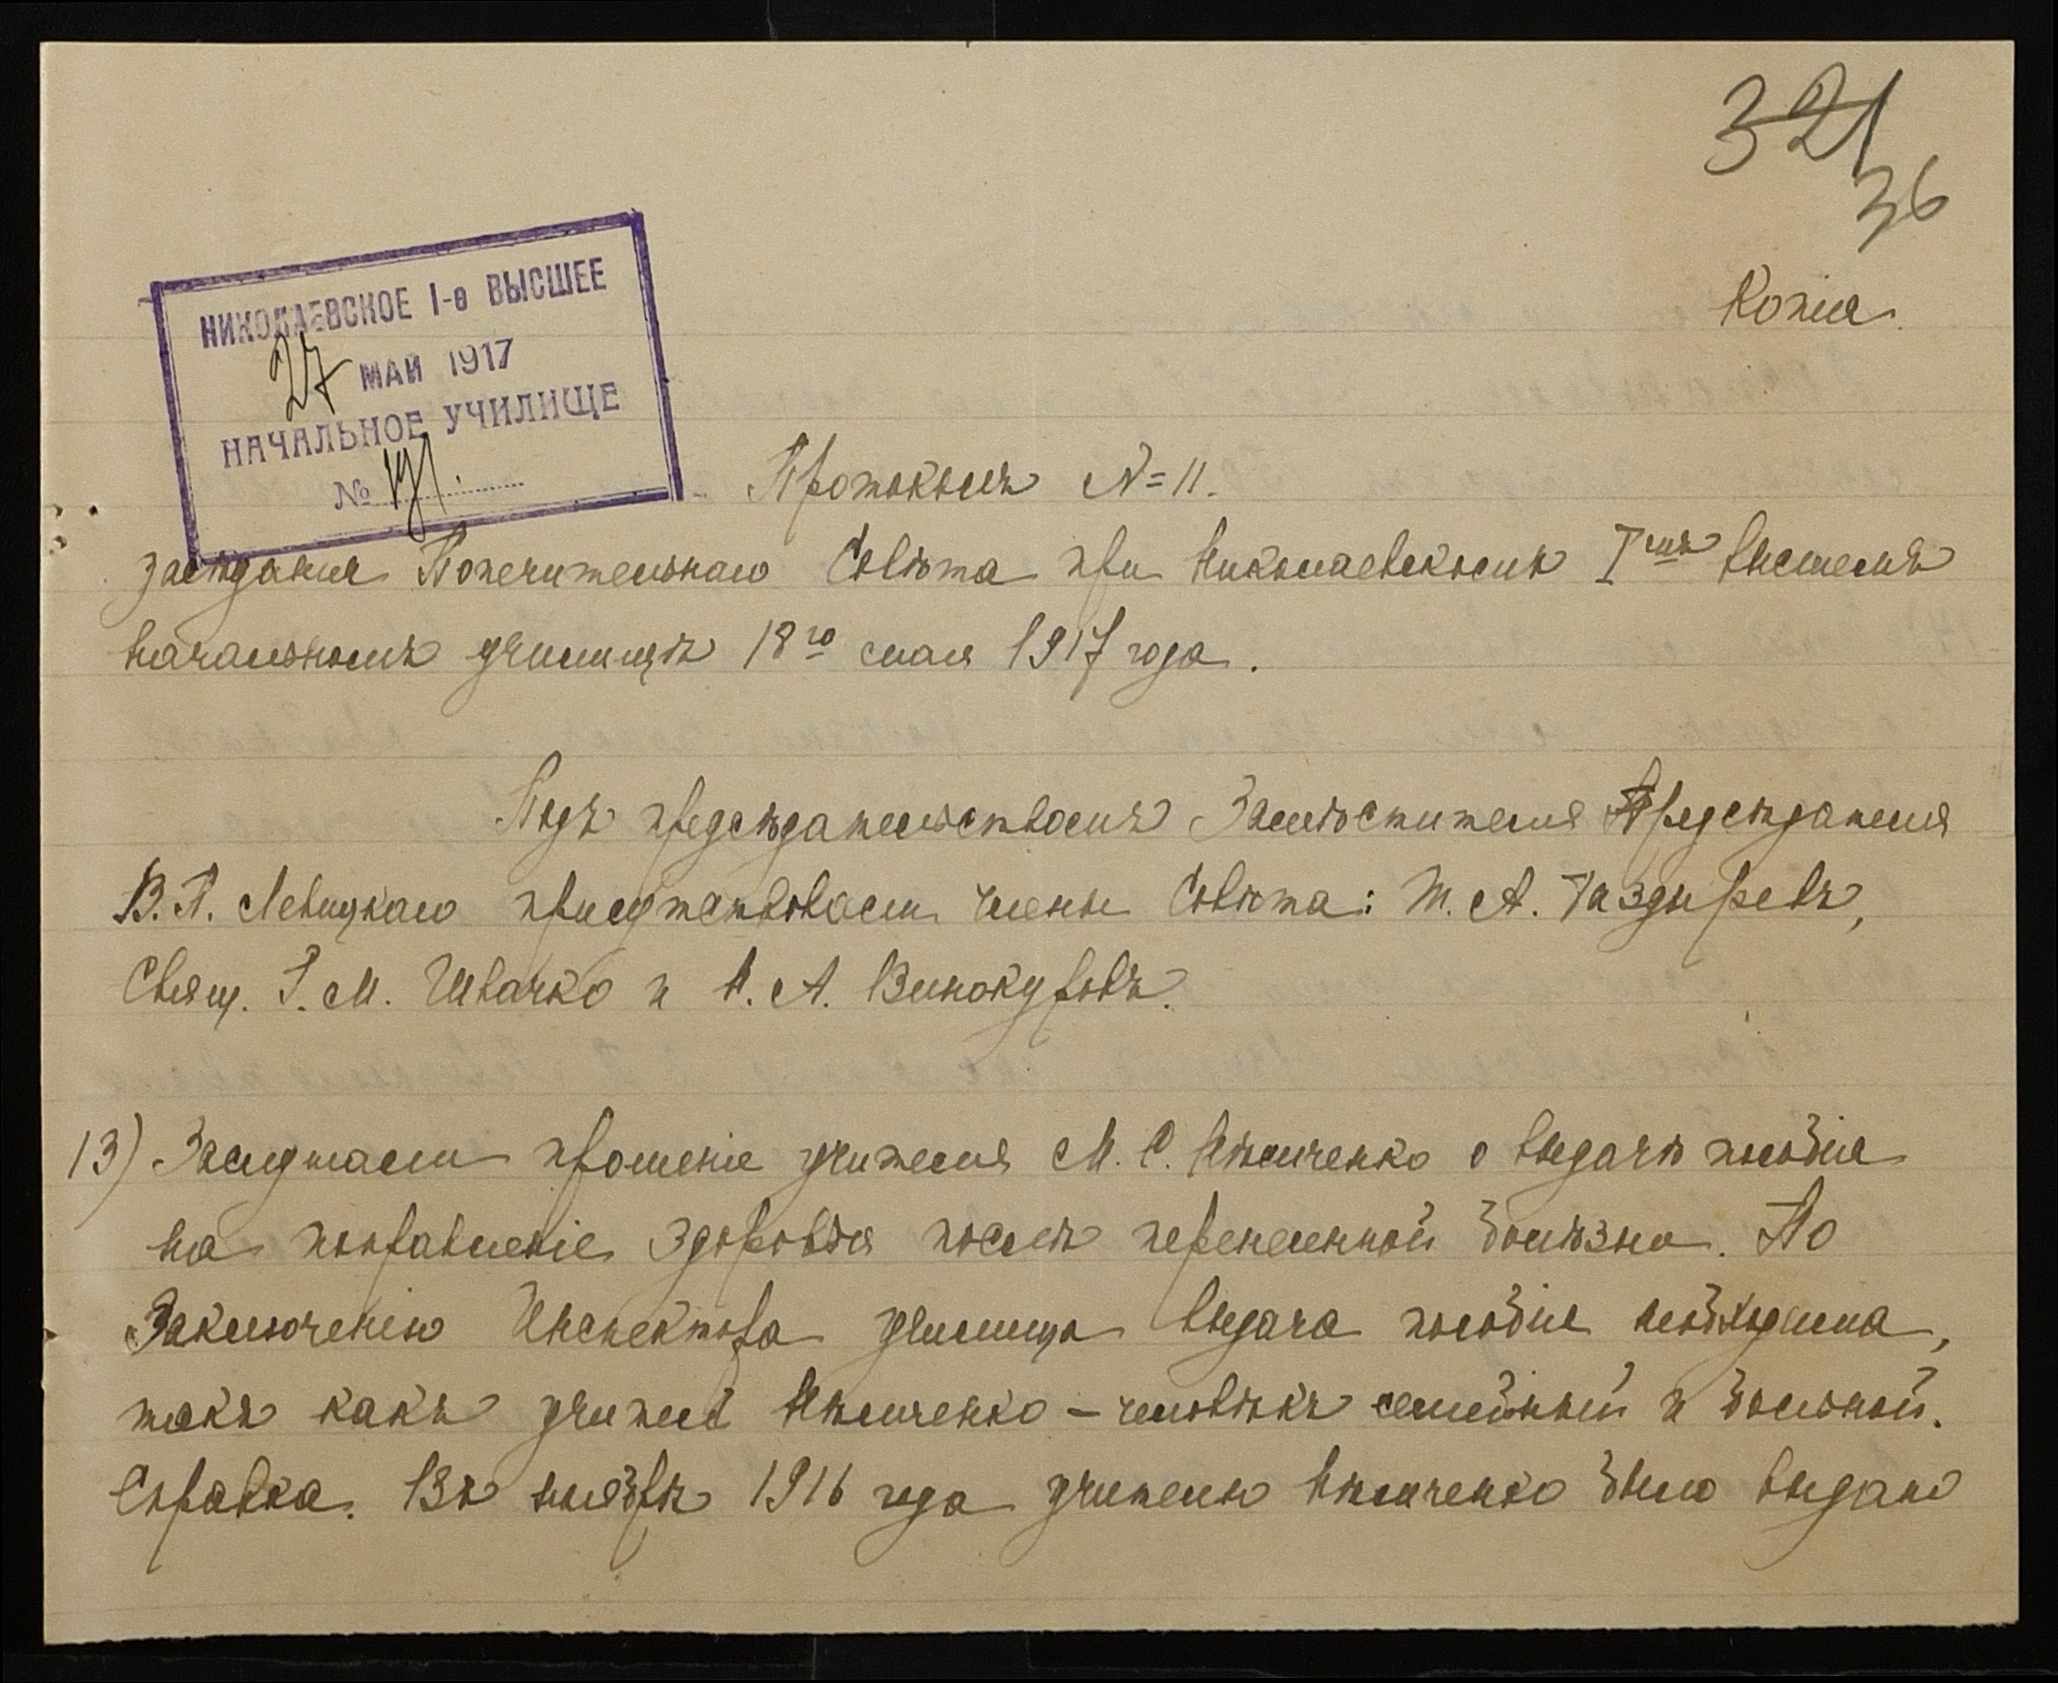 321
36
Копія.
НИКОЛАЕВСКОЕ 1-е ВЫСШЕЕ
27 МАЙ 1917
НАЧАЛЬНОЕ УЧИЛИЩЕ
№ 191.
Протоколъ № 11.
засѣданія Попечительнаго Совѣта при Николаевскомъ Iмъ высшемъ
начальномъ училищѣ 18го мая 1917 года.
Подъ предсѣдательствомъ Замѣстителя Предсѣдателя
В. П. Левицкаго присутствовали члены Совѣта: Т. А. Раздыревъ,
Свящ. Г. М. Швачко и Н. А. Винокуровъ.
13) Заслушали прошеніе учителя М. С. Нѣмченко о выдачѣ пособія
на поправленіе здоровья послѣ перенесенной болѣзни. По
Заключенію Инспектора училища выдача пособія необходима,
такъ какъ учитель Нѣмченко – человѣкъ семейный и больной.
Справка. Въ ноябрѣ 1916 года учителю Нѣмченко было выдано